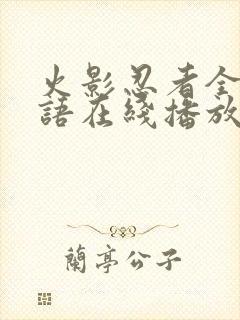 火影忍者全
語在綫播放
蘭亭公子